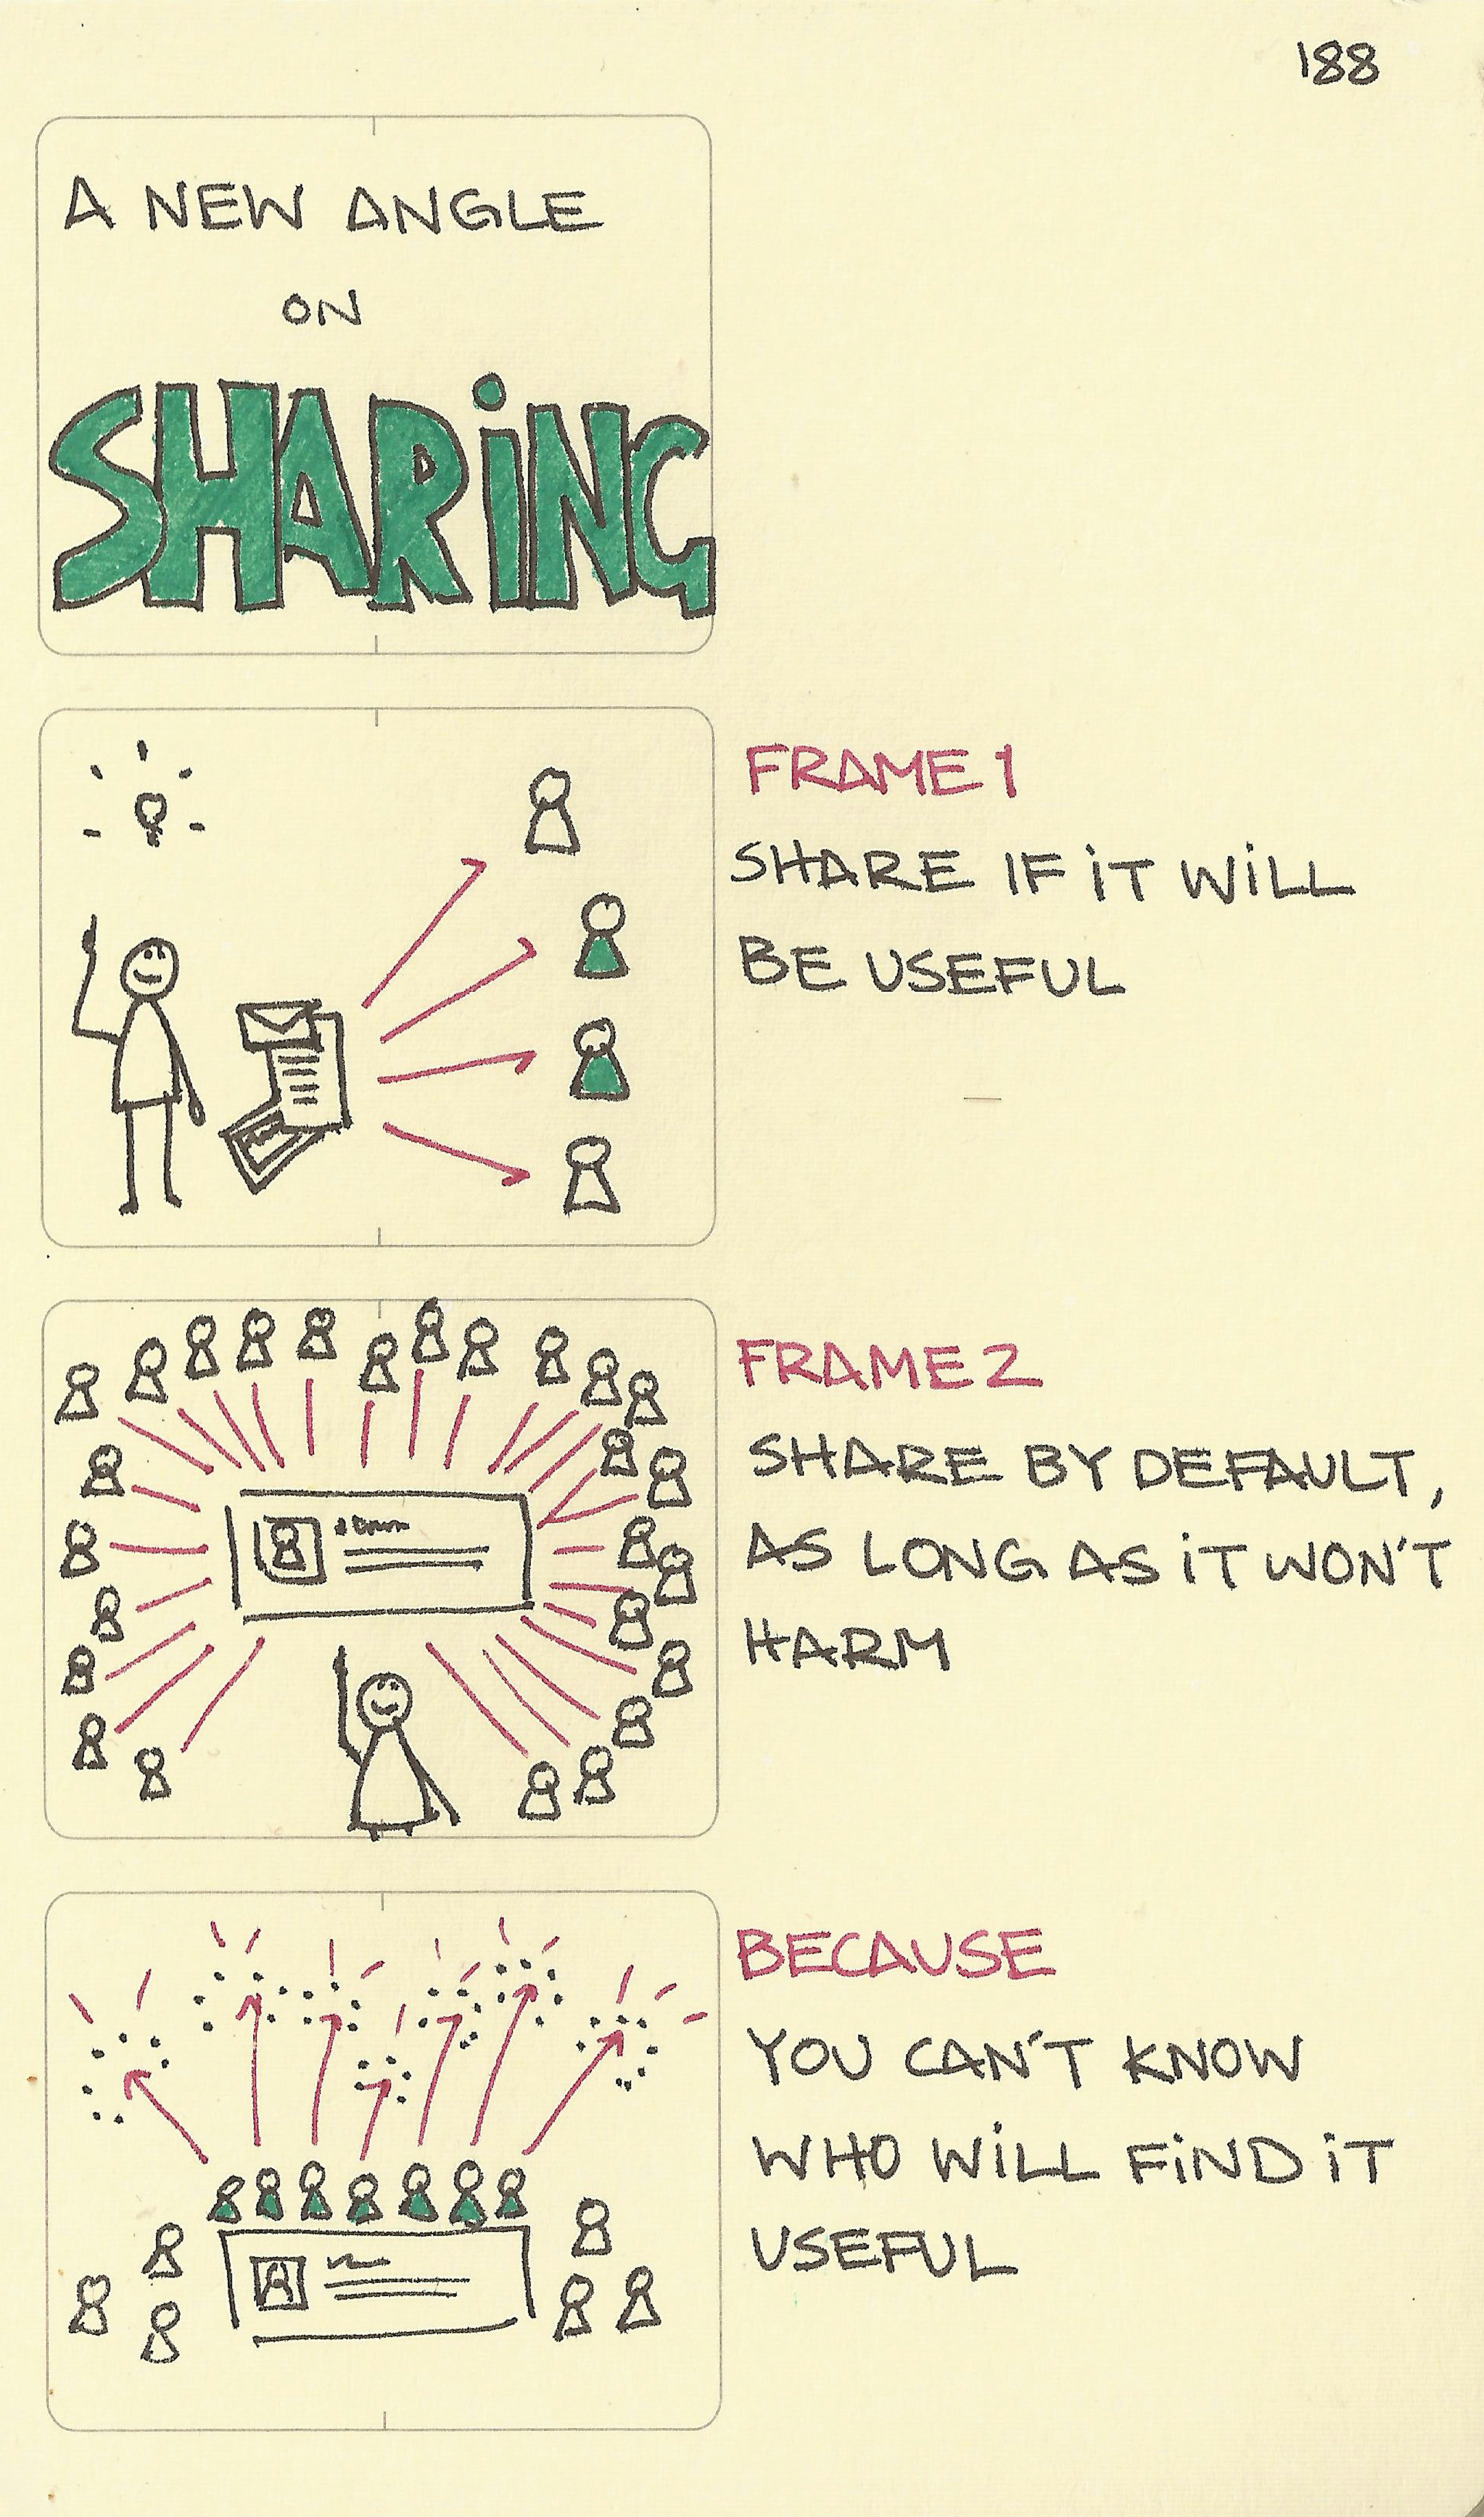 188
A NEW ANGLE
ON
SHARiNG
FRAME 1
SHARE IF iT WiLL
BE USEFUL
FRAME 2
SHARE BY DEFAULT,
AS LONG AS iT WON'T
HARM
BECAUSE
YOU CAN'T KNOW
WHO WiLL FiND iT
USEFUL